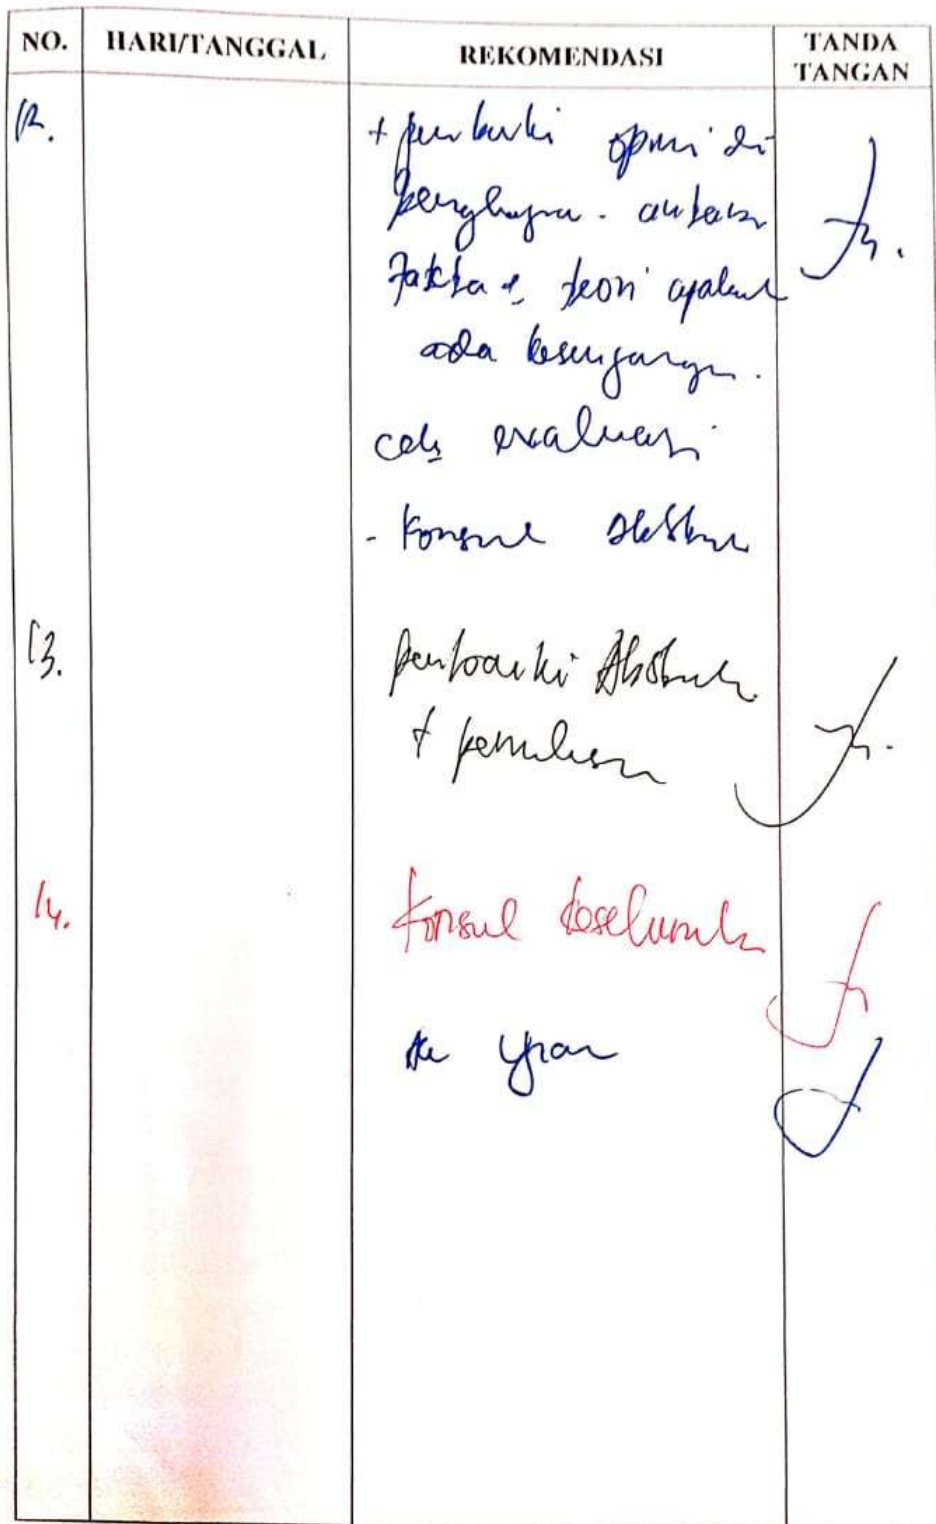 NO. HARI/TANGGAL REKOMENDASI TANDA TANGAN
12. + perbaiki opini di
pengkajian - antara
Fakta & teori apakah
ada kesenjangan.
cek evaluasi
- Konsul Abstrak
13. perbaiki Abstrak
+ penulisan
14. Konsul keseluruhan